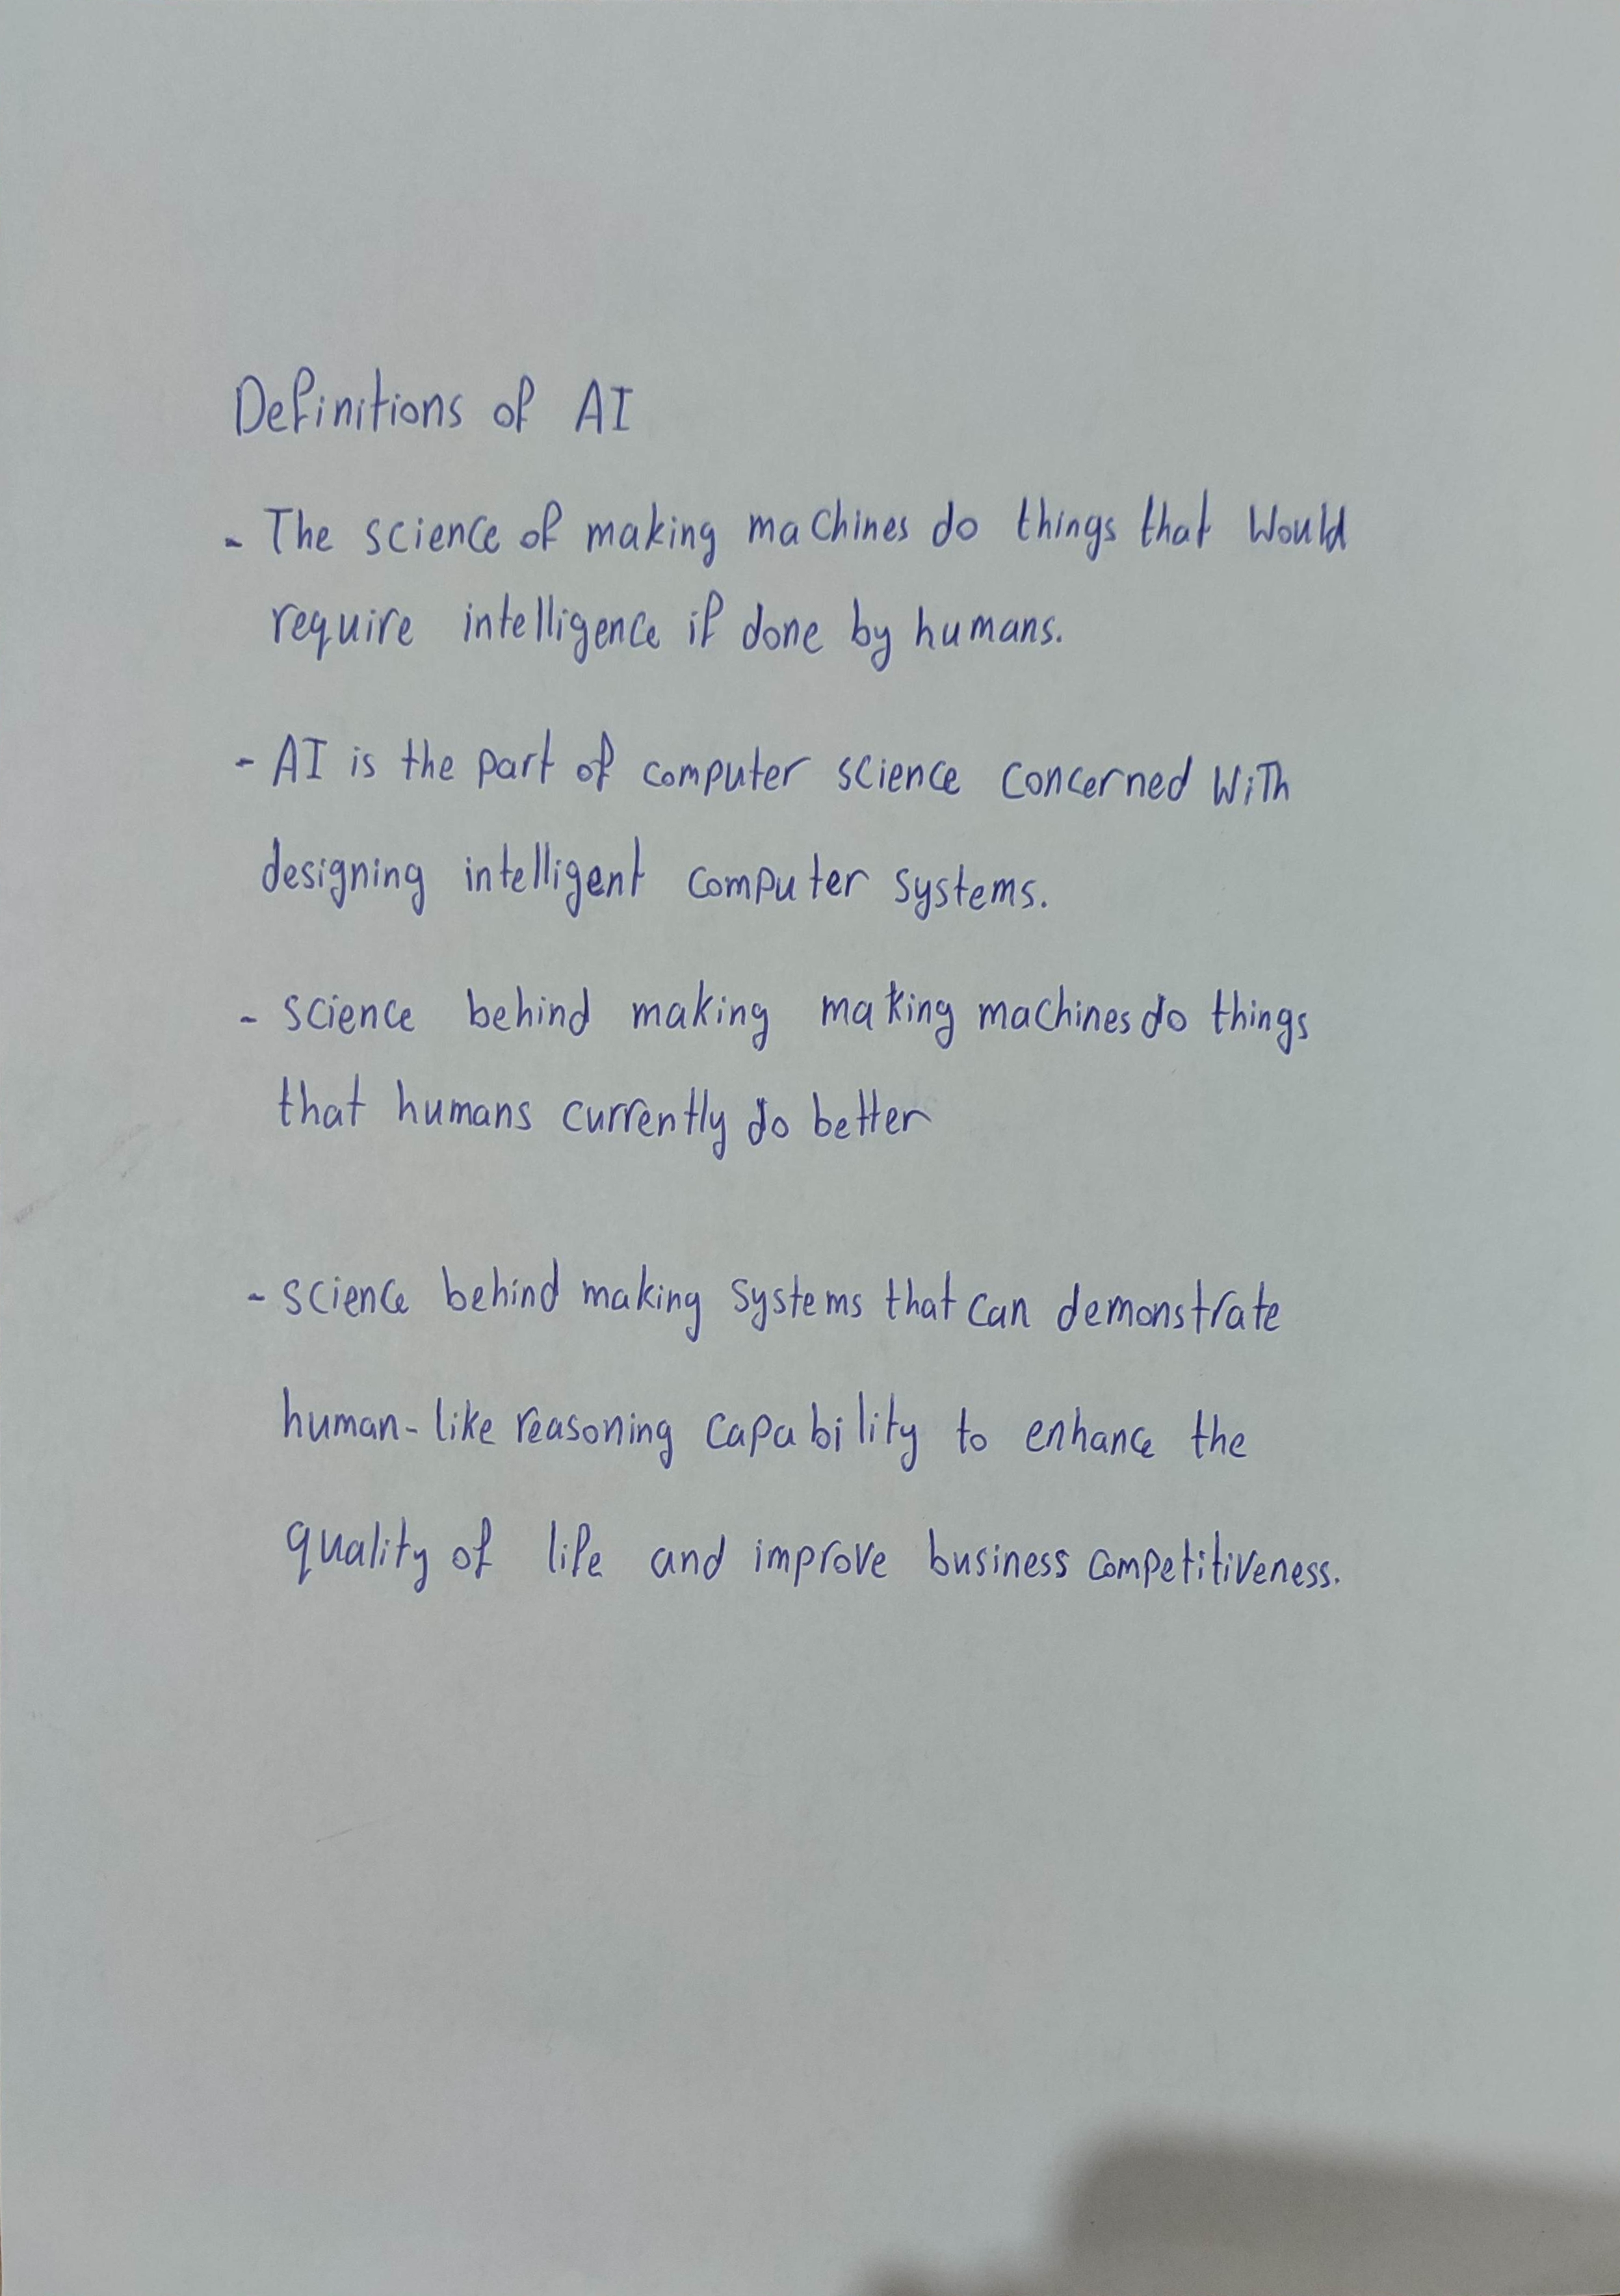 Definitions of AI
- The science of making machines do things that would
require intelligence if done by humans.
- AI is the part of computer science concerned with
designing intelligent computer systems.
- science behind making making machines do things
that humans currently do better
- science behind making systems that can demonstrate
human-like reasoning capability to enhance the
quality of life and improve business competitiveness.